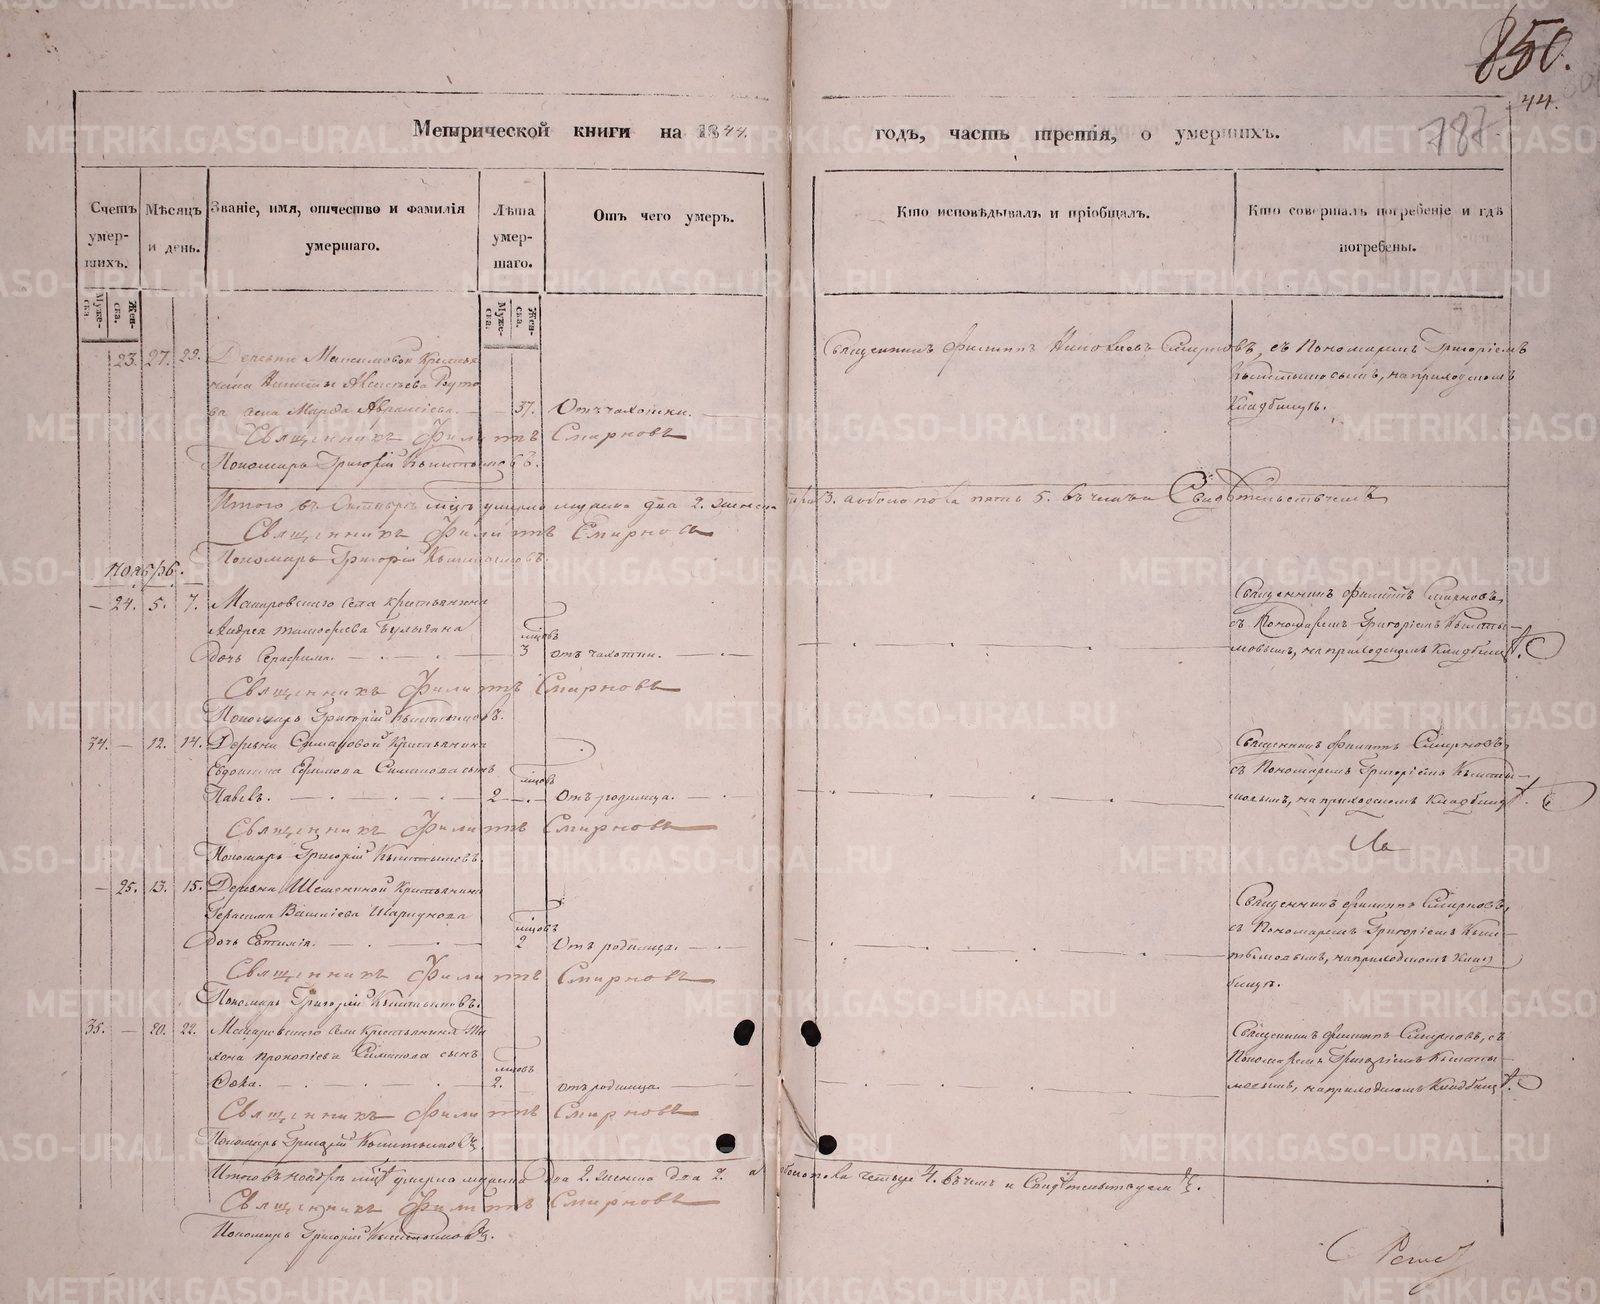 850.
44.
787
Метрической книги на 1844. годъ, часть третія, о умершихъ.
Счетъ умер-шихъ.
Мѣсяцъ и день.
Званіе, имя, отчество и фамилія умершаго.
Лѣта умер-шаго.
Отъ чего умеръ.
Кто исповѣдывалъ и пріобщалъ.
Кто совершалъ погребеніе и гдѣ погребены.
Муже-ска.
Жен-ска.
Муже-ска.
Жен-ска.
23. 27. 29. Деревни Крестья
нина Никиты
ва жена Марфа 37. Отъ чахотки.
Священникъ Филиппъ Николаевъ Смирновъ, съ Пономаремъ Григоріемъ
Кыштымовымъ, на приходскомъ
Кладбищѣ.
Священникъ Филиппъ Смирновъ
Пономарь Григорій Кыштымовъ.
Итого въ Октябрѣ мцѣ умерло мужеска два 2. женска три 3. а обоего пола пять 5. въ чемъ и Свидѣтельствуемъ
Священникъ Филиппъ Смирновъ
Пономарь Григорій Кыштымовъ.
Ноябрь.
24. 5. 7. села Крестьянина
Андрея Тимофеева Булыгина
дочь Серафима. мцовъ 3 отъ чахотки.
Священникъ Филиппъ Смирновъ,
съ Пономаремъ Григоріемъ Кышты-
мовымъ, на приходскомъ Кладбищѣ.
Священникъ Филиппъ Смирновъ
Пономарь Григорій Кыштымовъ.
34. 12. 14. Деревни Симановой Крестьянина
Евдокима Ефимова Симанова сынъ
Павелъ. мцовъ 2 Отъ родимца.
Священникъ Филиппъ Смирновъ,
съ Пономаремъ Григоріемъ Кышты-
мовымъ, на приходскомъ Кладбищѣ.
Священникъ Филиппъ Смирновъ
Пономарь Григорій Кыштымовъ.
25. 13. 15. Деревни Крестьянина
Герасима
дочь Евтимія. мцовъ 2 Отъ родимца.
Священникъ Филиппъ Смирновъ,
съ Пономаремъ Григоріемъ Кыш-
тымовымъ, на приходскомъ Клад
бищѣ.
Священникъ Филиппъ Смирновъ
Пономарь Григорій Кыштымовъ.
35. 20. 22. села Крестьянина Ти
хона Прокопіева Симанова сынъ
мцовъ 2. отъ родимца.
Священникъ Филиппъ Смирновъ, съ
Пономаремъ Григоріемъ Кышты-
мовымъ, на приходскомъ Кладбищѣ.
Священникъ Филиппъ Смирновъ
Пономарь Григорій Кыштымовъ.
Итого въ ноябрѣ мцѣ умерло мужеска два 2. женска два 2. а обоего пола четыре 4. въ чемъ и Свидѣтельствуемъ
Священникъ Филиппъ Смирновъ
Пономарь Григорій Кыштымовъ.
METRIKI.GASO-URAL.RU